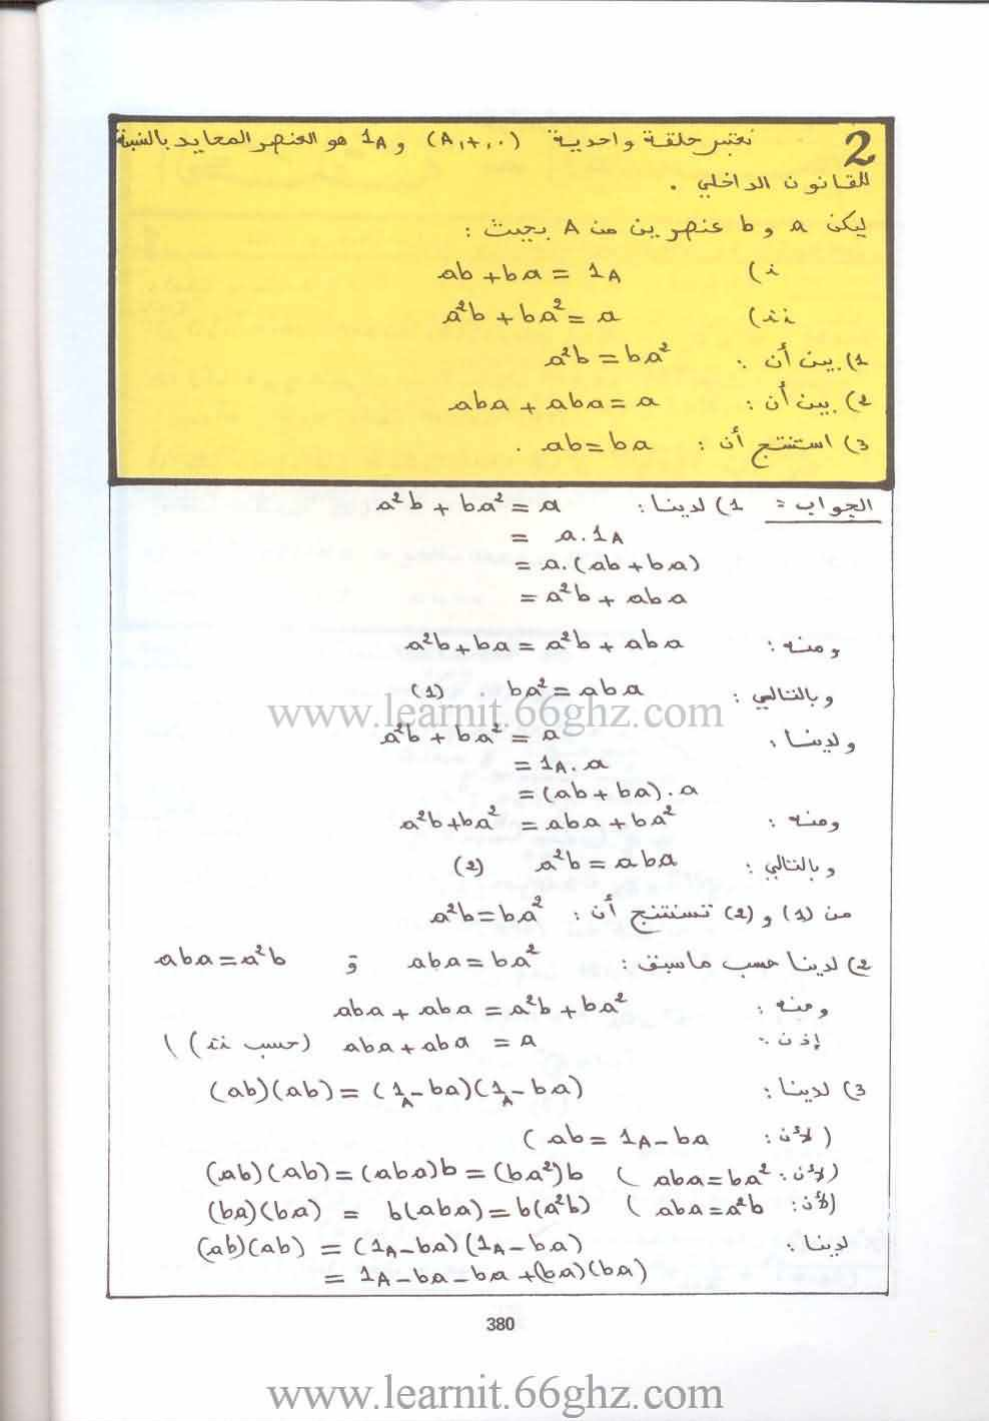 2 نعتبر حلقة واحدية (A,+,.) و 1A هو العنصر المحايد بالنسبة
للقانون الداخلي .
ليكن a و b عنصرين من A بحيث :
i) ab + ba = 1A
ii) a²b + ba² = a
1) بين أن : a²b = ba²
2) بين أن : aba + aba = a
3) استنتج أن : ab = ba .
الجواب = 1) لدينا : a²b + ba² = a
= a.1A
= a.(ab + ba)
= a²b + aba
ومنه : a²b + ba = a²b + aba
وبالتالي : ba² = aba . (1)
www.learnit.66ghz.com
ولدينا : a²b + ba² = a
= 1A.a
= (ab + ba).a
ومنه : a²b + ba² = aba + ba²
وبالتالي : a²b = aba (2)
من (1) و (2) نستنتج أن : a²b = ba²
2) لدينا حسب ماسبق : aba = ba² و aba = a²b
ومنه : aba + aba = a²b + ba²
إذن : aba + aba = a (حسب ii)
3) لدينا : (ab)(ab) = (1A - ba)(1A - ba)
(لأن : ab = 1A - ba)
(ab)(ab) = (aba)b = (ba²)b (لأن : aba = ba²)
(ba)(ba) = b(aba) = b(a²b) (لأن : aba = a²b)
لدينا : (ab)(ab) = (1A - ba)(1A - ba)
= 1A - ba - ba + (ba)(ba)
380
www.learnit.66ghz.com